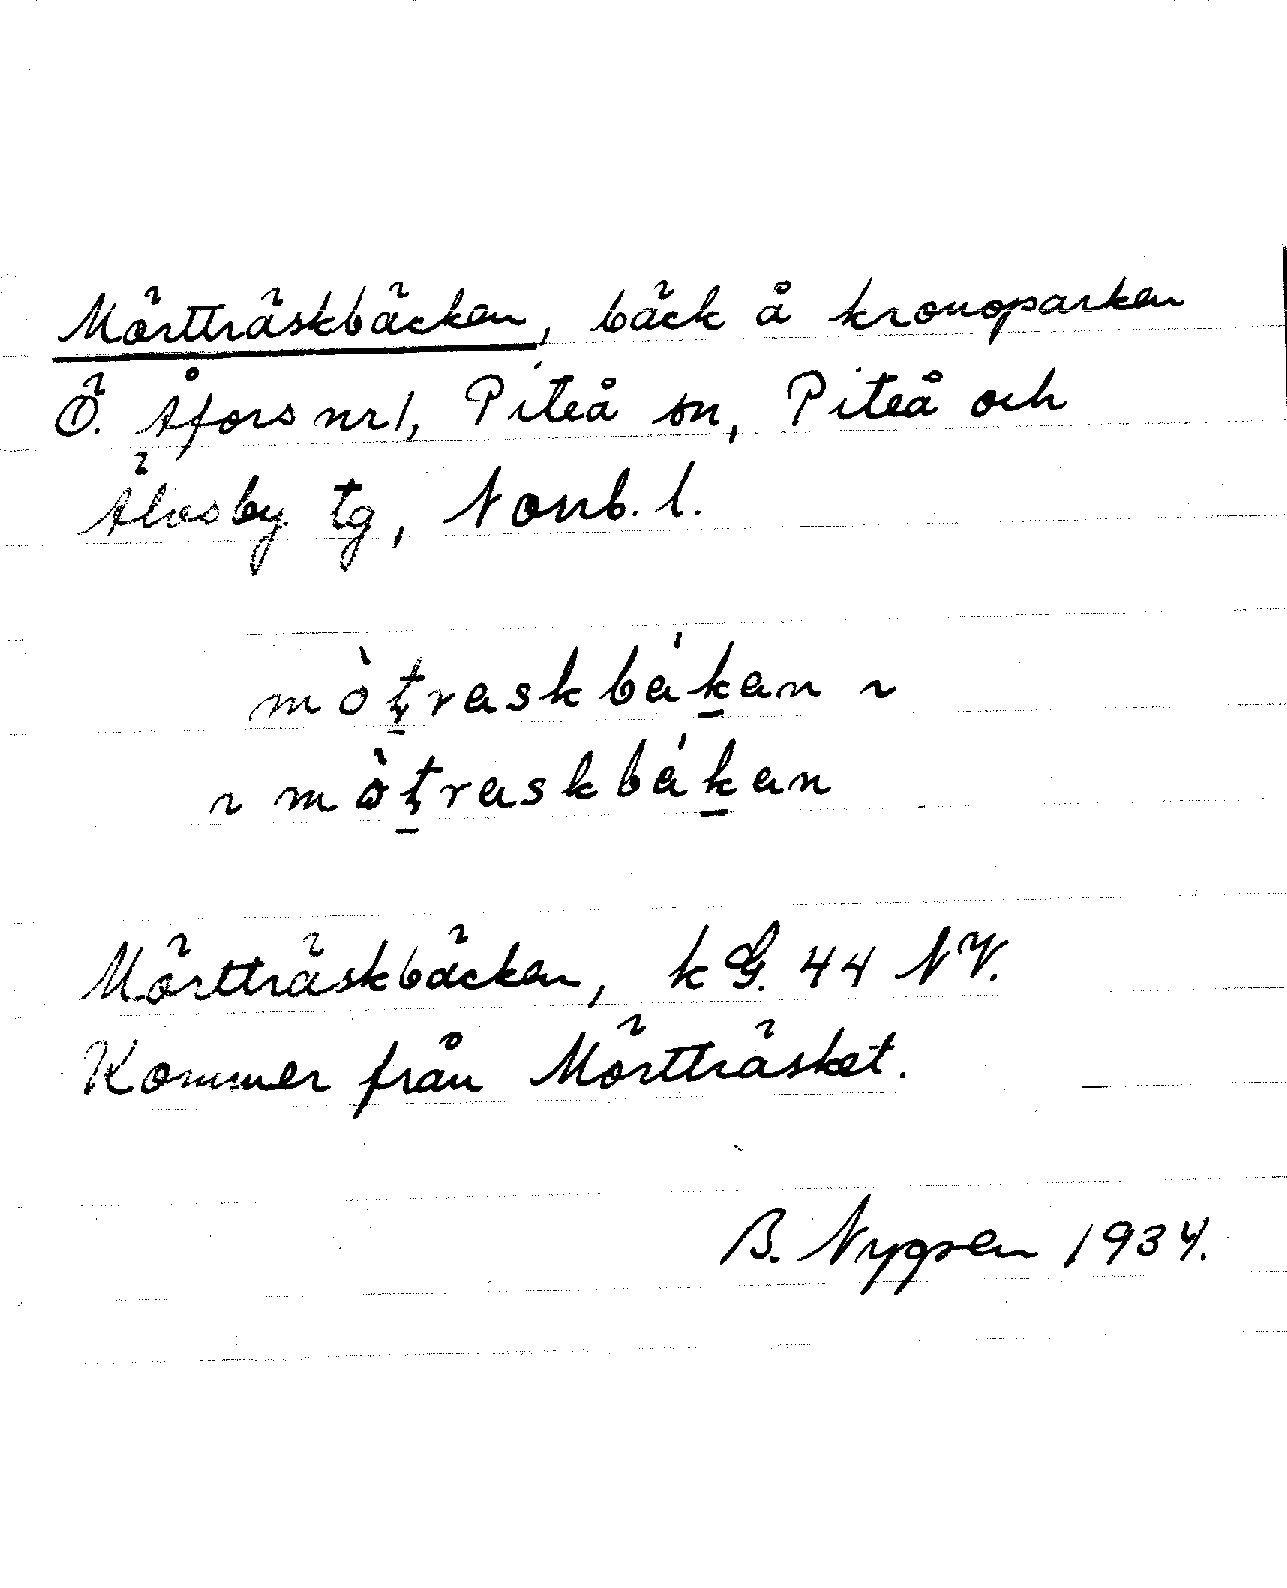 Mörtträskbäcken, bäck å kronoparken
Ö. Åfors nr 1, Piteå sn, Piteå och
Älvsby tg, Norrb. l.
mòţraskbákan ~
~ mòţraskbákan
Mörtträskbäcken, kG. 44 NV.
Kommer från Mörtträsket.
B. Nygren 1934.